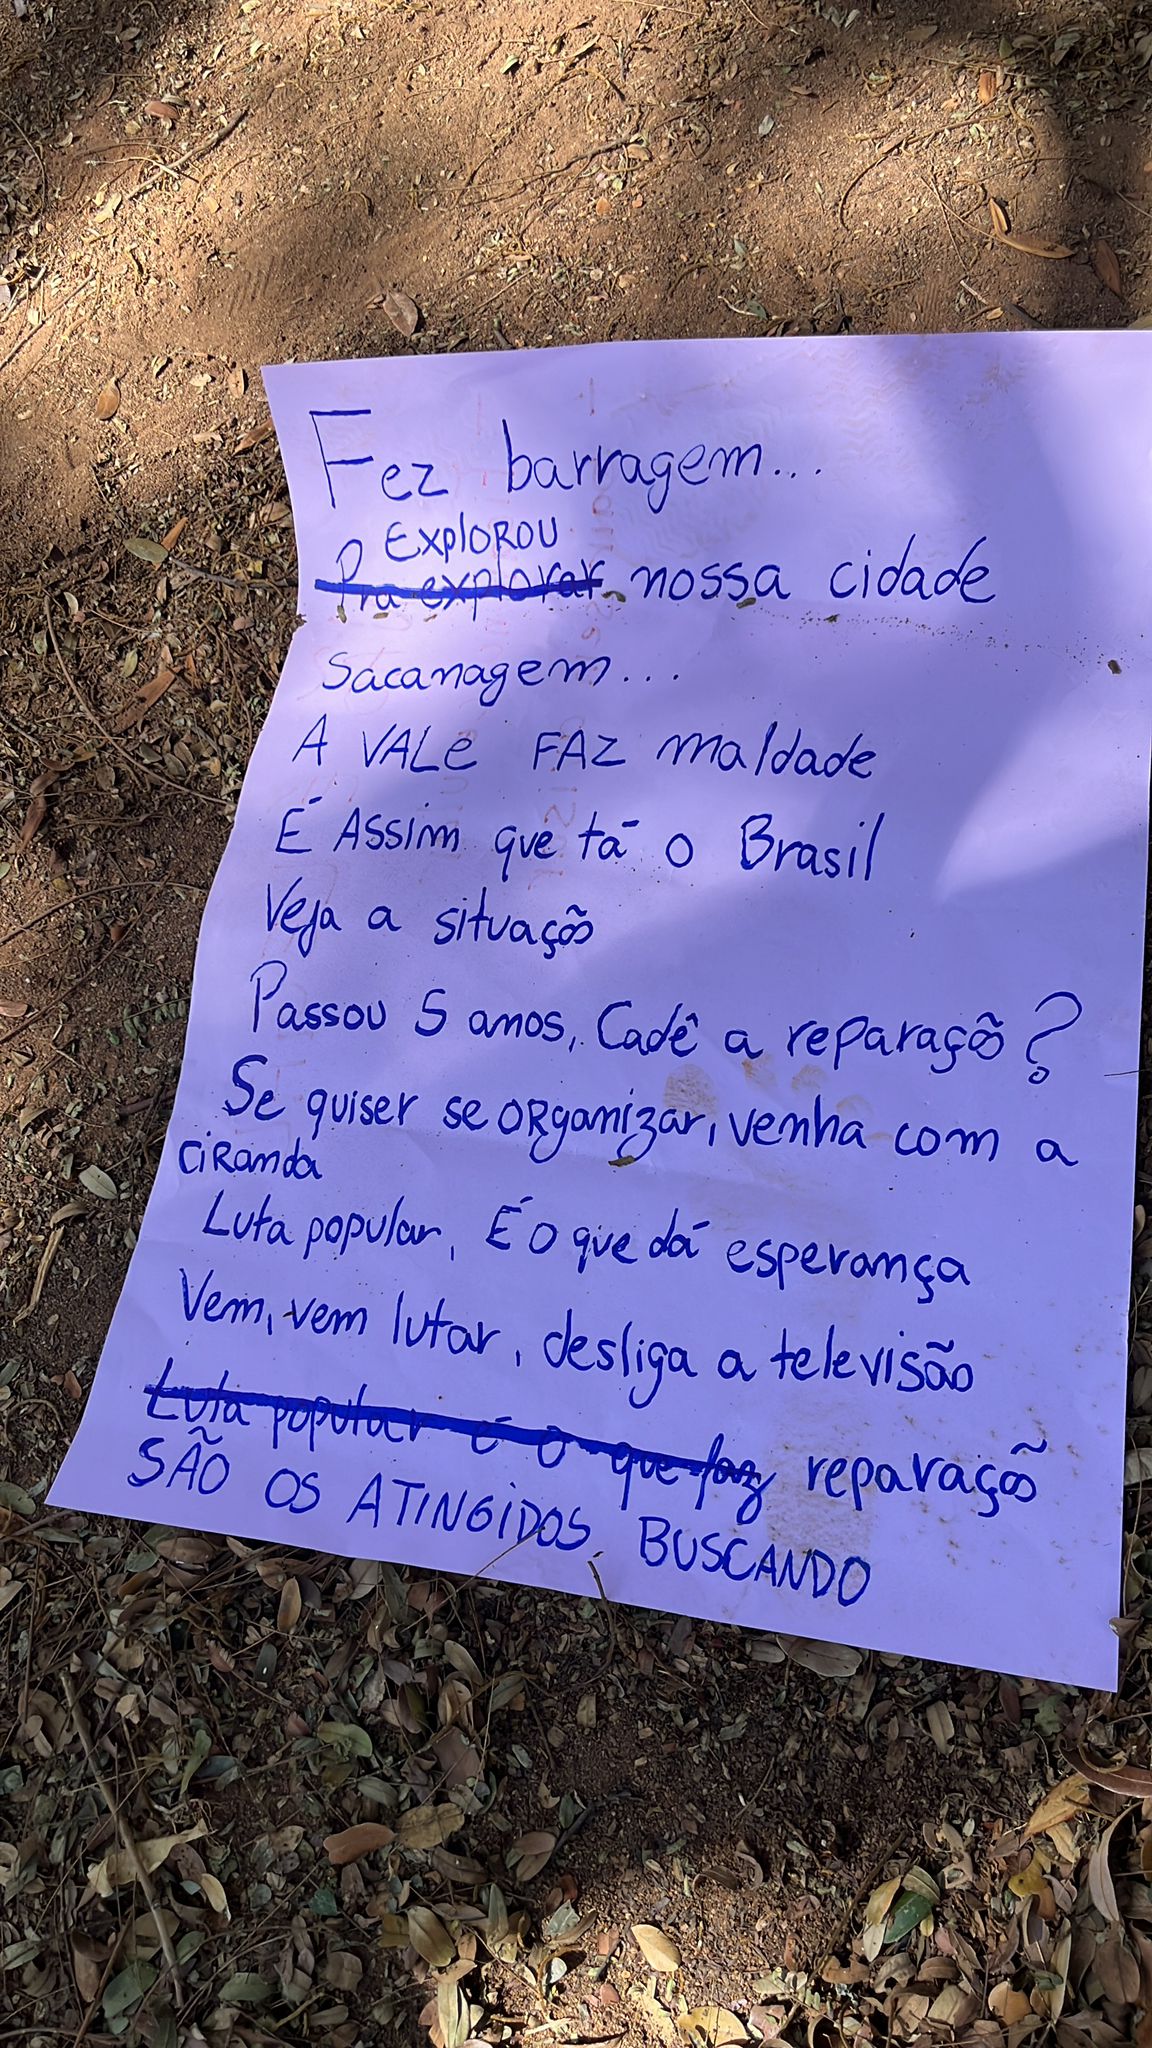 Fez barragem...
EXPLOROU
Pra explorar nossa cidade
Sacanagem...
A VALE FAZ maldade
É Assim que tá o Brasil
Veja a situação
Passou 5 anos, Cadê a reparação?
Se quiser se ORganizar, venha com a
CiRanda
Luta popular, É o que dá esperança
Vem, vem lutar, desliga a televisão
Luta popular é o que faz reparação
SÃO OS ATINGIDOS BUSCANDO